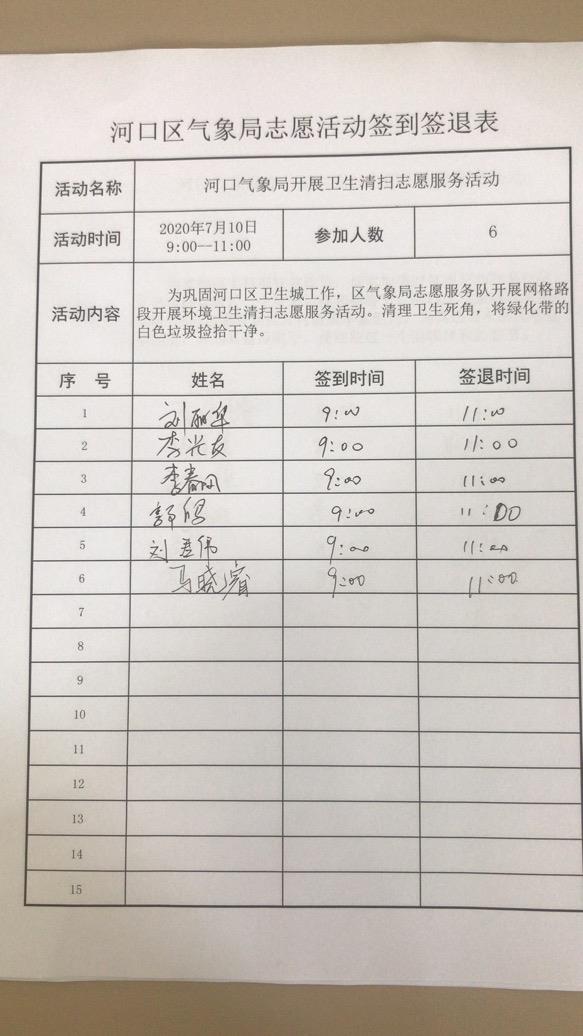 河口区气象局志愿活动签到签退表
活动名称 河口气象局开展卫生清扫志愿服务活动
活动时间 2020年7月10日 9:00--11:00 参加人数 6
活动内容 为巩固河口区卫生城工作，区气象局志愿服务队开展网格路
段开展环境卫生清扫志愿服务活动。清理卫生死角，将绿化带的
白色垃圾捡拾干净。
序 号 姓名 签到时间 签退时间
1 刘丽华 9:00 11:00
2 李兴友 9:00 11:00
3 李春 9:00 11:00
4 9:00 11:00
5 刘 伟 9:00 11:00
6 马晓睿 9:00 11:00
7
8
9
10
11
12
13
14
15